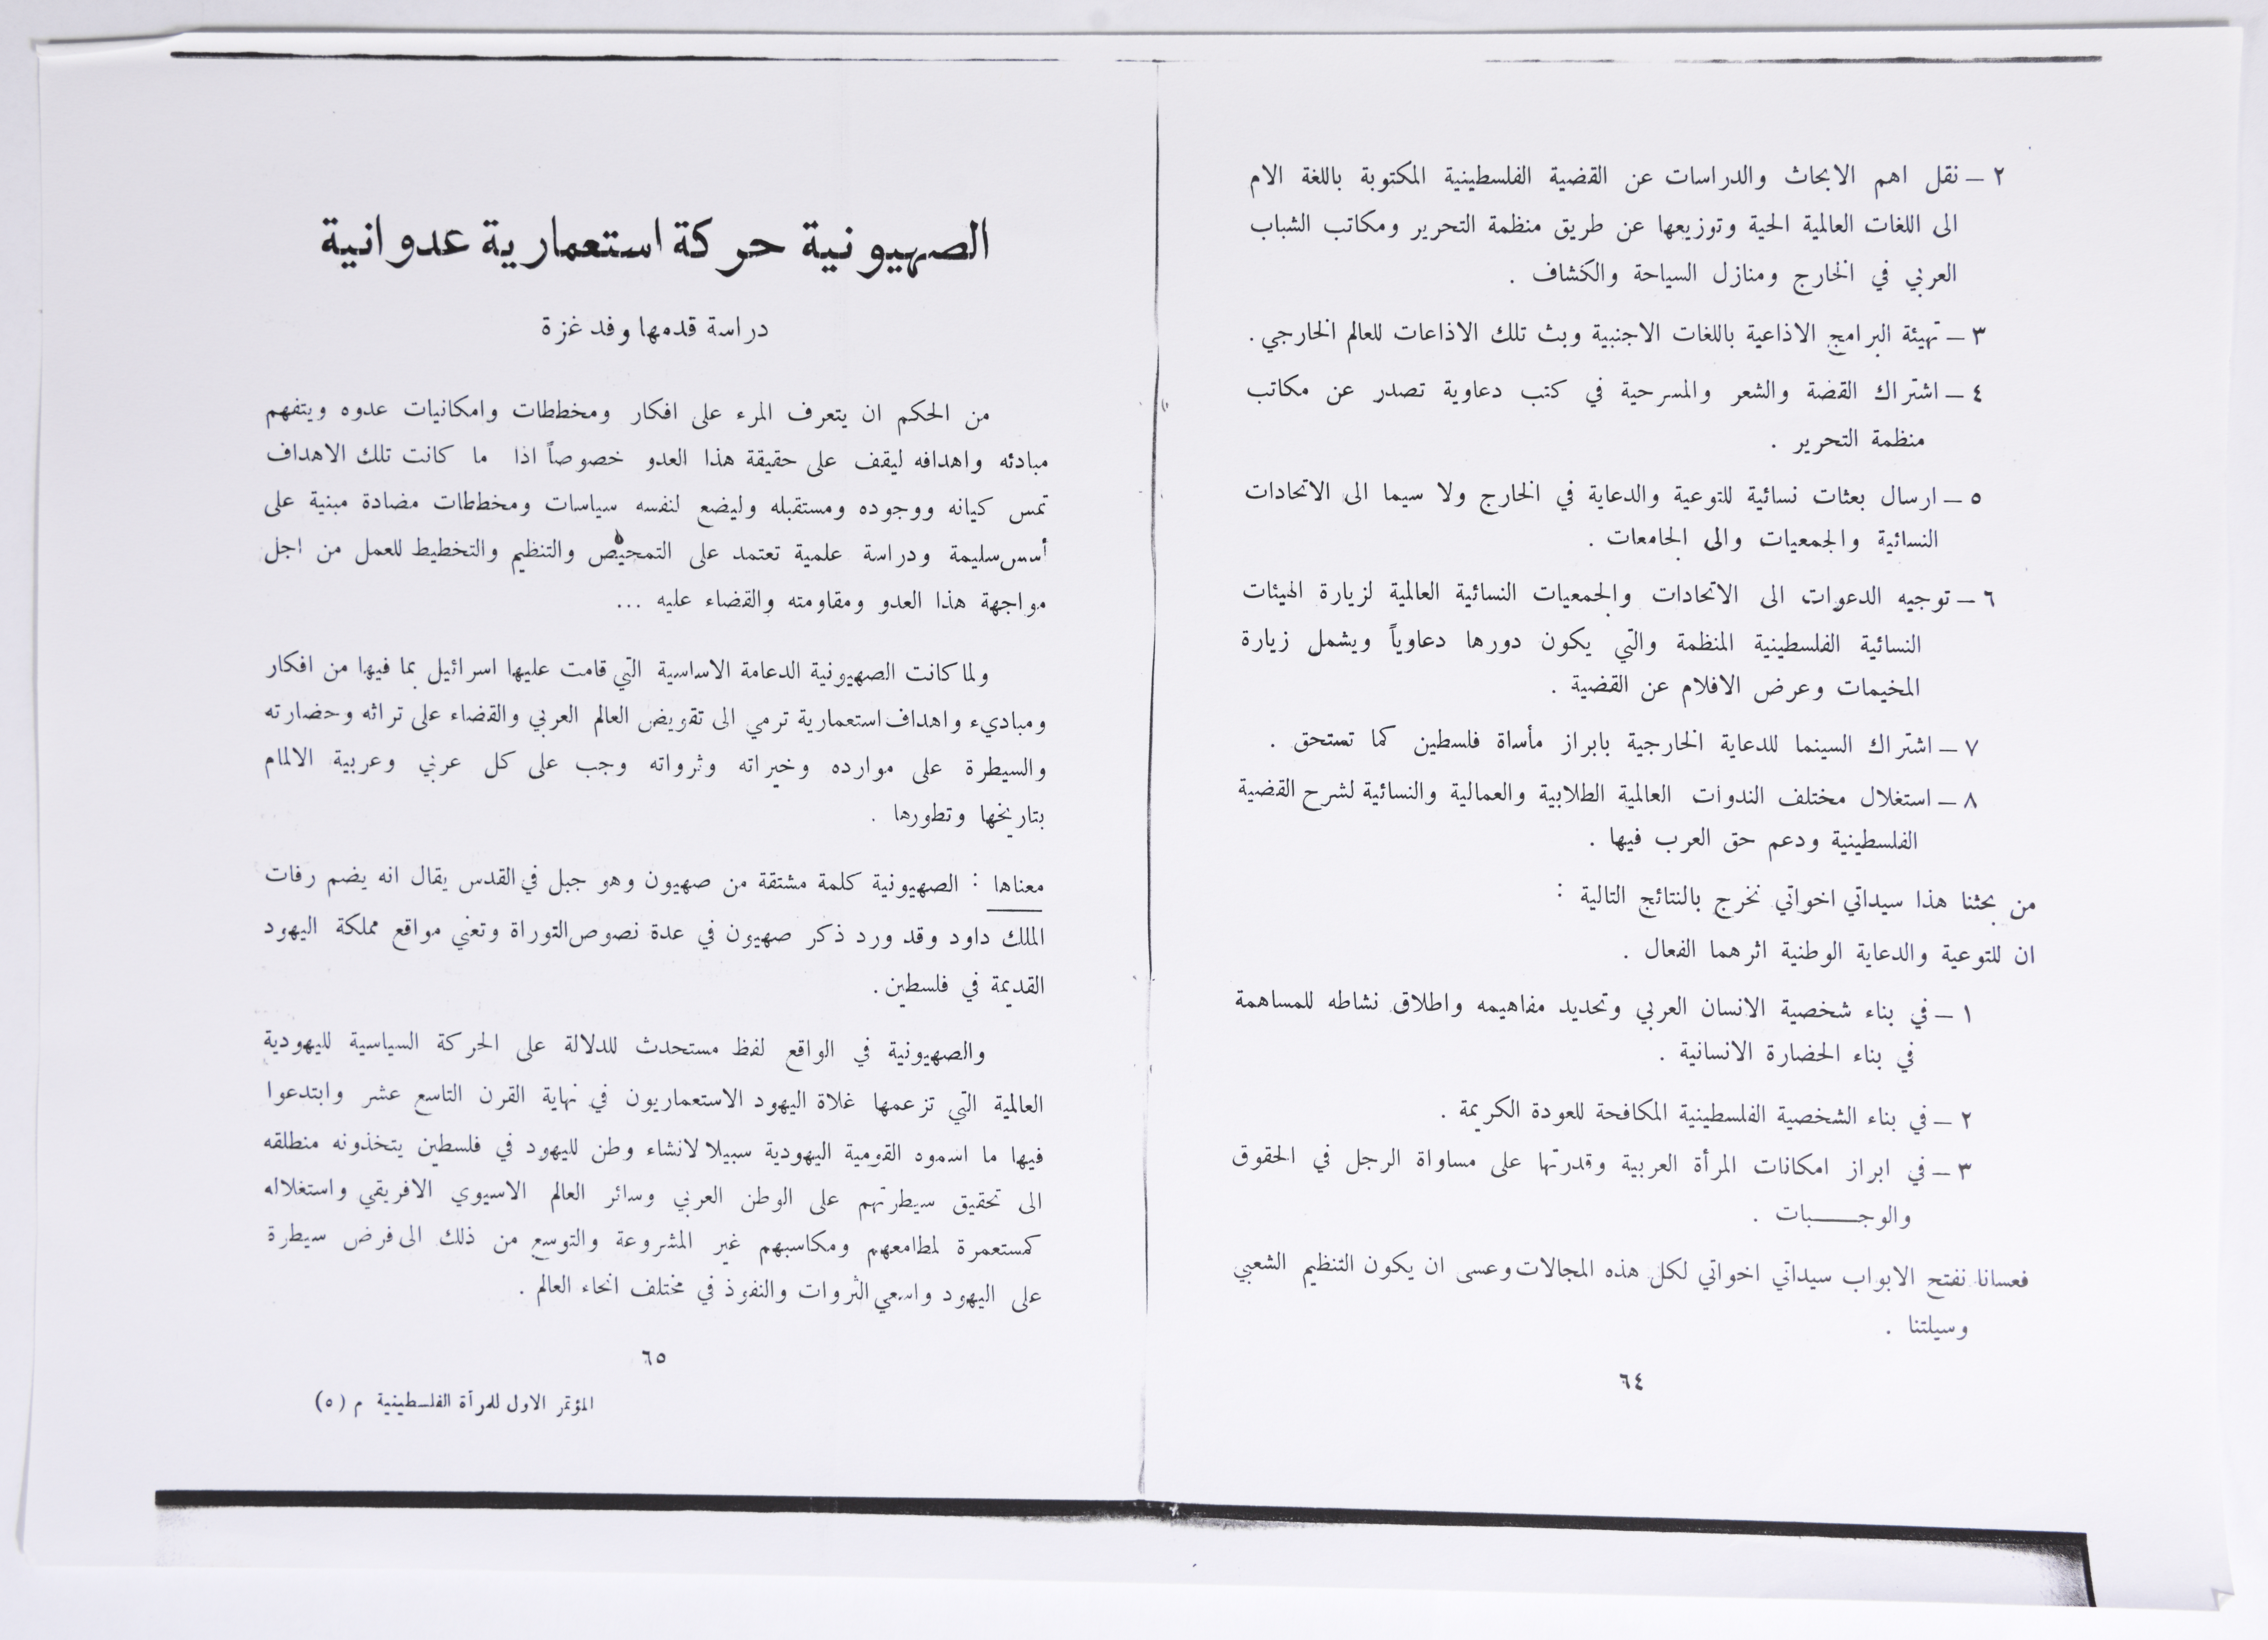 ٢ ــ نقل اهم الابحاث والدراسات عن القضية الفلسطينية المكتوبة باللغة الام
الى اللغات العالمية الحية وتوزيعها عن طريق منظمة التحرير ومكاتب الشباب
العربي في الخارج ومنازل السياحة والكشاف .
٣ ــ تهيئة البرامج الاذاعية باللغات الاجنبية وبث تلك الاذاعات للعالم الخارجي .
٤ ــ اشتراك القصة والشعر والمسرحية في كتب دعاوية تصدر عن مكاتب
منظمة التحرير .
٥ ــ ارسال بعثات نسائية للتوعية والدعاية في الخارج ولا سيما الى الاتحادات
النسائية والجمعيات والى الجامعات .
٦ ــ توجيه الدعوات الى الاتحادات والجمعيات النسائية العالمية لزيارة الهيئات
النسائية الفلسطينية المنظمة والتي يكون دورها دعاوياً ويشمل زيارة
المخيمات وعرض الافلام عن القضية .
٧ ــ اشتراك السينما للدعاية الخارجية بابراز مأساة فلسطين كما تستحق .
٨ ــ استغلال مختلف الندوات العالمية الطلابية والعمالية والنسائية لشرح القضية
الفلسطينية ودعم حق العرب فيها .
من بحثنا هذا سيداتي اخواتي نخرج بالنتائج التالية :
ان للتوعية والدعاية الوطنية اثرهما الفعال .
١ ــ في بناء شخصية الانسان العربي وتحديد مفاهيمه واطلاق نشاطه للمساهمة
في بناء الحضارة الانسانية .
٢ ــ في بناء الشخصية الفلسطينية المكافحة للعودة الكريمة .
٣ ــ في ابراز امكانات المرأة العربية وقدرتها على مساواة الرجل في الحقوق
والوجـــــبات .
فعسانا نفتح الابواب سيداتي اخواتي لكل هذه المجالات وعسى ان يكون التنظيم الشعبي
وسيلتنا .
٦٤
الصهيونية حركة استعمارية عدوانية
دراسة قدمها وفد غزة
من الحكم ان يتعرف المرء على افكار ومخططات وامكانيات عدوه ويتفهم
مبادئه واهدافه ليقف على حقيقة هذا العدو خصوصاً اذا ما كانت تلك الاهداف
تمس كيانه ووجوده ومستقبله وليضع لنفسه سياسات ومخططات مضادة مبنية على
أسس سليمة ودراسة علمية تعتمد على التمحيص والتنظيم والتخطيط للعمل من اجل
مواجهة هذا العدو ومقاومته والقضاء عليه ...
ولما كانت الصهيونية الدعامة الاساسية التي قامت عليها اسرائيل بما فيها من افكار
ومباديء واهداف استعمارية ترمي الى تقويض العالم العربي والقضاء على تراثه وحضارته
والسيطرة على موارده وخيراته وثرواته وجب على كل عربي وعربية الالمام
بتاريخها وتطورها .
معناها : الصهيونية كلمة مشتقة من صهيون وهو جبل في القدس يقال انه يضم رفات
الملك داود وقد ورد ذكر صهيون في عدة نصوص التوراة وتعني مواقع مملكة اليهود
القديمة في فلسطين .
والصهيونية في الواقع لفظ مستحدث للدلالة على الحركة السياسية لليهودية
العالمية التي تزعمها غلاة اليهود الاستعماريون في نهاية القرن التاسع عشر وابتدعوا
فيها ما اسموه القومية اليهودية سبيلا لانشاء وطن لليهود في فلسطين يتخذونه منطلقه
الى تحقيق سيطرتهم على الوطن العربي وسائر العالم الاسيوي الافريقي واستغلاله
كمستعمرة لمطامعهم ومكاسبهم غير المشروعة والتوسع من ذلك الى فرض سيطرة
على اليهود واسعي الثروات والنفوذ في مختلف انحاء العالم .
٦٥
المؤتمر الاول للمرأة الفلسطينية م (٥)